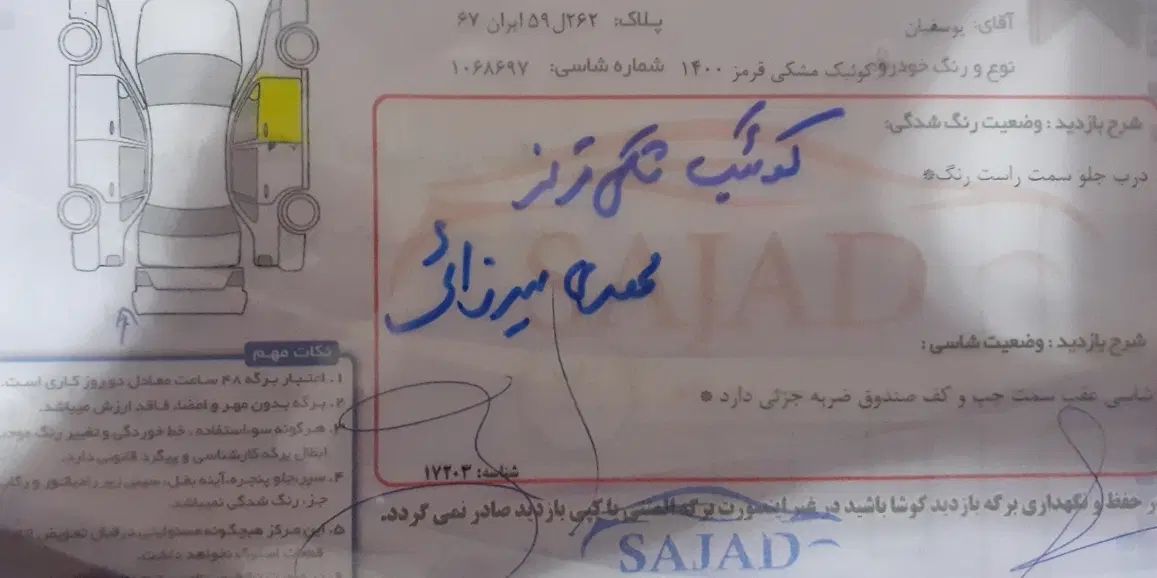 آقای: یوسفیان
پلاک: ۲۶۲ل۵۹ ایران ۶۷
نوع و رنگ خودرو کوئیک مشکی قرمز ۱۴۰۰ شماره شاسی: ۱۰۶۸۶۹۷
شرح بازدید : وضعیت رنگ شدگی:
درب جلو سمت راست رنگ*
کوئیک مشکی قرمز
میرزائی
SAJAD
شرح بازدید : وضعیت شاسی :
شاسی عقب سمت چپ و کف صندوق ضربه جزئی دارد *
شناسه: ۱۷۲۰۳
در حفظ و نگهداری برگه بازدید کوشا باشید در غیر اینصورت برگه المثنی یا کپی بازدید صادر نمی گردد.
SAJAD
نکات مهم
۱. اعتبار برگه ۴۸ ساعت معادل دو روز کاری است.
۲. برگه بدون مهر و امضاء فاقد ارزش میباشد.
۳. هرگونه سوءاستفاده، خط خوردگی و تغییر رنگ موجب
ابطال برگه کارشناسی و پیگرد قانونی دارد.
۴. سپر، جلو پنجره، آینه بغل، سینی زیر رادیاتور و
جز، رنگ شدگی نمیباشد.
۵. این مرکز هیچگونه مسئولیتی در قبال تعویض
قطعات نخواهد داشت.